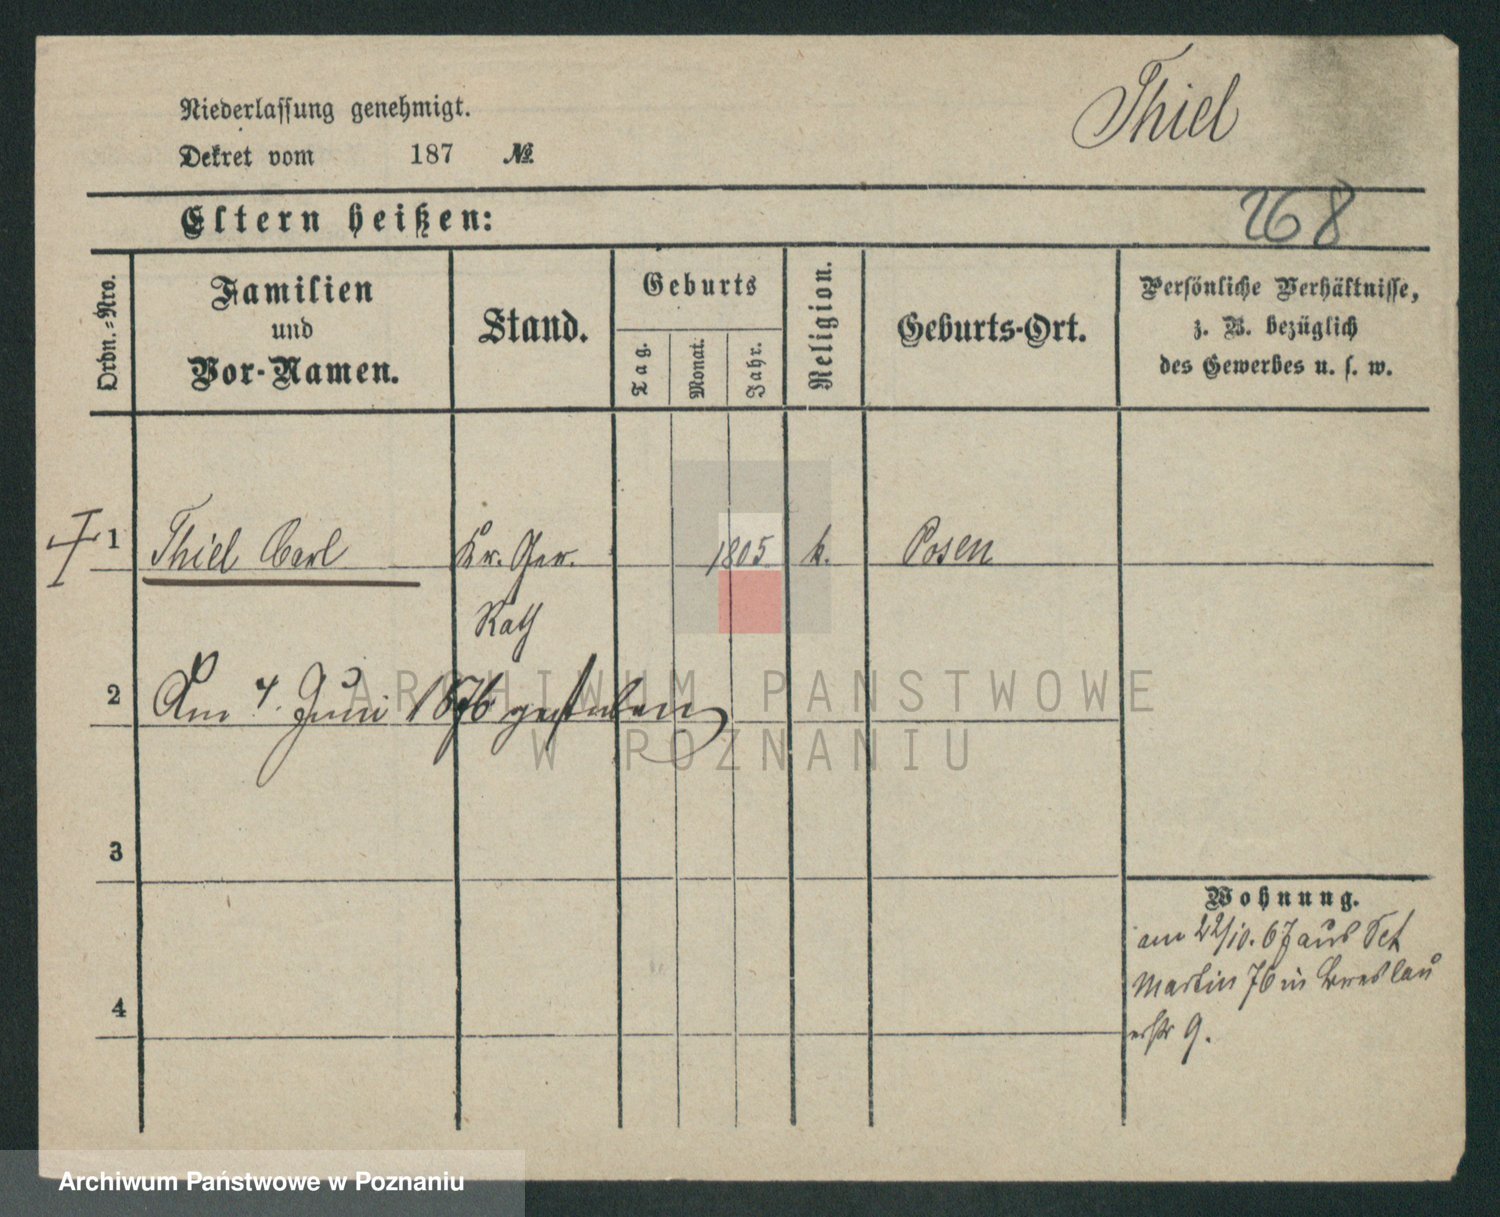 Thiel
Niederlassung genehmigt.
Dekret vom 187 №
268
Eltern heißen:
Ordn.-Nro.
Familien
und
Vor-Namen.
Stand.
Geburts
Tag.
Monat.
Jahr.
Religion.
Geburts-Ort.
Persönliche Verhältnisse,
z. B. bezüglich
des Gewerbes u. s. w.
1 Thiel Carl Kr. Ger. 1805 k. Posen
Rath
2 Am 4. Juni 1876 gestorben
ARCHIWUM PAŃSTWOWE
W POZNANIU
3
Wohnung.
am 22/10. 67 aus Sct
Martin 76 in Breslau
4
9.
Archiwum Państwowe w Poznaniu